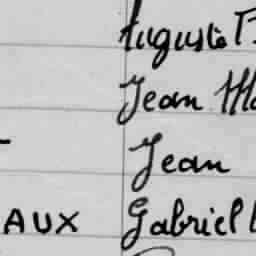 Auguste
Jean
Jean
AUX Gabriel